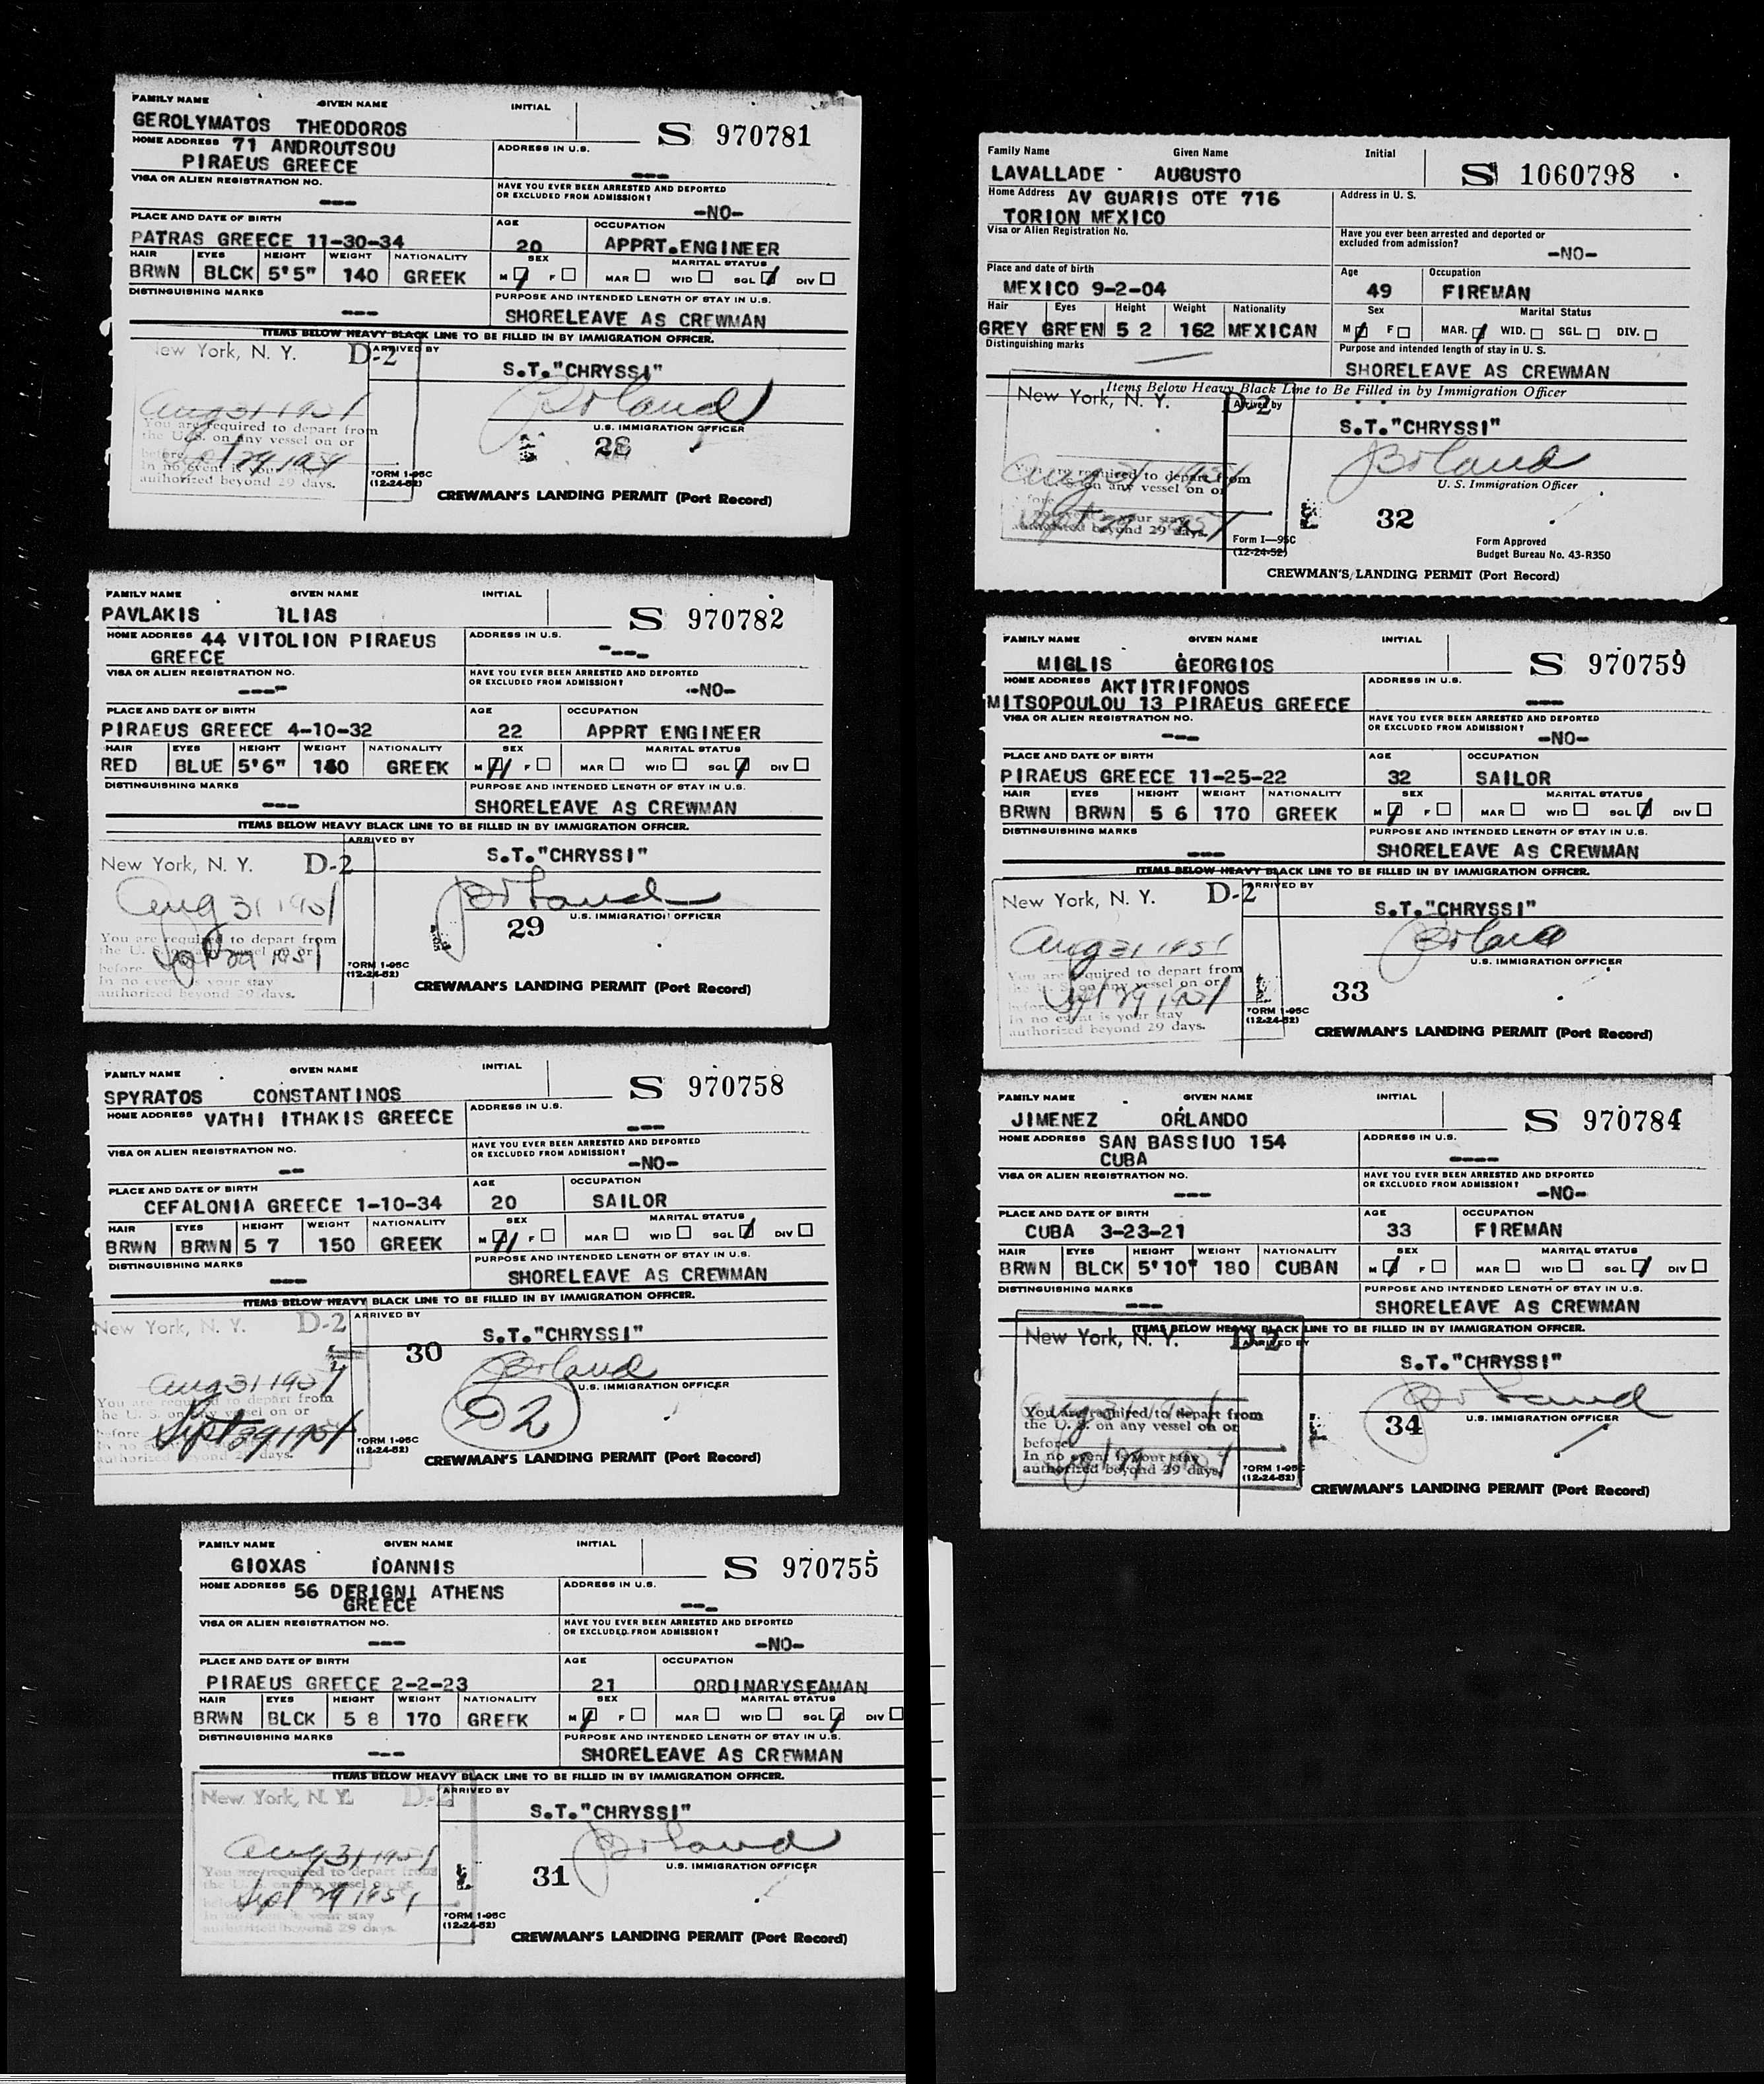 FAMILY NAME GIVEN NAME INITIAL
GEROLYMATOS THEODOROS S 970781
HOME ADDRESS 71 ANDROUTSOU ADDRESS IN U.S.
PIRAEUS GREECE ---
VISA OR ALIEN REGISTRATION NO. HAVE YOU EVER BEEN ARRESTED AND DEPORTED
OR EXCLUDED FROM ADMISSION?
--- -NO-
PLACE AND DATE OF BIRTH AGE OCCUPATION
PATRAS GREECE 11-30-34 20 APPRT.ENGINEER
HAIR EYES HEIGHT WEIGHT NATIONALITY SEX MARITAL STATUS
BRWN BLCK 5'5" 140 GREEK M F MAR WID SGL DIV
DISTINGUISHING MARKS PURPOSE AND INTENDED LENGTH OF STAY IN U.S.
--- SHORELEAVE AS CREWMAN
ITEMS BELOW HEAVY BLACK LINE TO BE FILLED IN BY IMMIGRATION OFFICER.
New York, N. Y. D-2 ARRIVED BY
S.T."CHRYSSI"
Aug 31 1954
Boland
You are required to depart from
the U.S. on any vessel on or
U.S. IMMIGRATION OFFICER
before Sept 29 1954
28
In no event is your stay
authorized beyond 29 days.
FORM I-95C
(12-24-52)
CREWMAN'S LANDING PERMIT (Port Record)
FAMILY NAME GIVEN NAME INITIAL
PAVLAKIS ILIAS S 970782
HOME ADDRESS 44 VITOLION PIRAEUS ADDRESS IN U.S.
GREECE ---
VISA OR ALIEN REGISTRATION NO. HAVE YOU EVER BEEN ARRESTED AND DEPORTED
OR EXCLUDED FROM ADMISSION?
--- -NO-
PLACE AND DATE OF BIRTH AGE OCCUPATION
PIRAEUS GREECE 4-10-32 22 APPRT ENGINEER
HAIR EYES HEIGHT WEIGHT NATIONALITY SEX MARITAL STATUS
RED BLUE 5'6" 160 GREEK M F MAR WID SGL DIV
DISTINGUISHING MARKS PURPOSE AND INTENDED LENGTH OF STAY IN U.S.
--- SHORELEAVE AS CREWMAN
ITEMS BELOW HEAVY BLACK LINE TO BE FILLED IN BY IMMIGRATION OFFICER.
New York, N. Y. D-2 ARRIVED BY
S.T."CHRYSSI"
Aug 31 1954
Boland
29 U.S. IMMIGRATION OFFICER
You are required to depart from
the U. S. on any vessel on or
before Sept 29 1954
In no event is your stay
authorized beyond 29 days.
FORM I-95C
(12-24-52)
CREWMAN'S LANDING PERMIT (Port Record)
FAMILY NAME GIVEN NAME INITIAL
SPYRATOS CONSTANTINOS S 970758
HOME ADDRESS VATHI ITHAKIS GREECE ADDRESS IN U.S.
---
VISA OR ALIEN REGISTRATION NO. HAVE YOU EVER BEEN ARRESTED AND DEPORTED
OR EXCLUDED FROM ADMISSION?
-- -NO-
PLACE AND DATE OF BIRTH AGE OCCUPATION
CEFALONIA GREECE 1-10-34 20 SAILOR
HAIR EYES HEIGHT WEIGHT NATIONALITY SEX MARITAL STATUS
BRWN BRWN 5 7 150 GREEK M F MAR WID SGL DIV
DISTINGUISHING MARKS PURPOSE AND INTENDED LENGTH OF STAY IN U.S.
--- SHORELEAVE AS CREWMAN
ITEMS BELOW HEAVY BLACK LINE TO BE FILLED IN BY IMMIGRATION OFFICER.
New York, N. Y. D-2 ARRIVED BY
S.T."CHRYSSI"
30
Aug 31 1954 Boland
U.S. IMMIGRATION OFFICER
You are required to depart from
the U. S. on any vessel on or
D2
before Sept 29 1954
In no event is your stay
authorized beyond 29 days.
FORM I-95C
(12-24-52)
CREWMAN'S LANDING PERMIT (Port Record)
FAMILY NAME GIVEN NAME INITIAL
GIOXAS IOANNIS S 970755
HOME ADDRESS 56 DERIGNI ATHENS ADDRESS IN U.S.
GREECE ---
VISA OR ALIEN REGISTRATION NO. HAVE YOU EVER BEEN ARRESTED AND DEPORTED
OR EXCLUDED FROM ADMISSION?
--- -NO-
PLACE AND DATE OF BIRTH AGE OCCUPATION
PIRAEUS GREECE 2-2-23 21 ORDINARYSEAMAN
HAIR EYES HEIGHT WEIGHT NATIONALITY SEX MARITAL STATUS
BRWN BLCK 5 8 170 GREEK M F MAR WID SGL DIV
DISTINGUISHING MARKS PURPOSE AND INTENDED LENGTH OF STAY IN U.S.
--- SHORELEAVE AS CREWMAN
ITEMS BELOW HEAVY BLACK LINE TO BE FILLED IN BY IMMIGRATION OFFICER.
New York, N. Y. D-2 ARRIVED BY
S.T."CHRYSSI"
Aug 31 1954 Boland
You are required to depart from
31 U.S. IMMIGRATION OFFICER
the U. S. on any vessel on or
before Sept 29 1954
In no event is your stay
authorized beyond 29 days.
FORM I-95C
(12-24-52)
CREWMAN'S LANDING PERMIT (Port Record)
Family Name Given Name Initial
LAVALLADE AUGUSTO S 1060798
Home Address AV GUARIS OTE 716 Address in U. S.
TORION MEXICO
Visa or Alien Registration No. Have you ever been arrested and deported or
excluded from admission?
-NO-
Place and date of birth Age Occupation
MEXICO 9-2-04 49 FIREMAN
Hair Eyes Height Weight Nationality Sex Marital Status
GREY GREEN 5 2 162 MEXICAN M F MAR. WID. SGL. DIV.
Distinguishing marks Purpose and intended length of stay in U. S.
SHORELEAVE AS CREWMAN
Items Below Heavy Black Line to Be Filled in by Immigration Officer
New York, N. Y. D-2 Arrived by
S.T."CHRYSSI"
Boland
You are required to depart from
Aug 31 1954
on any vessel on or
U. S. Immigration Officer
Sept 29 1954
32
beyond 29 days.
Form I—95C
(12-24-52)
Form Approved
Budget Bureau No. 43-R350
CREWMAN'S LANDING PERMIT (Port Record)
FAMILY NAME GIVEN NAME INITIAL
MIGLIS GEORGIOS S 970759
HOME ADDRESS AKTITRIFONOS ADDRESS IN U.S.
MITSOPOULOU 13 PIRAEUS GREECE ---
VISA OR ALIEN REGISTRATION NO. HAVE YOU EVER BEEN ARRESTED AND DEPORTED
OR EXCLUDED FROM ADMISSION?
--- -NO-
PLACE AND DATE OF BIRTH AGE OCCUPATION
PIRAEUS GREECE 11-25-22 32 SAILOR
HAIR EYES HEIGHT WEIGHT NATIONALITY SEX MARITAL STATUS
BRWN BRWN 5 6 170 GREEK M F MAR WID SGL DIV
DISTINGUISHING MARKS PURPOSE AND INTENDED LENGTH OF STAY IN U.S.
--- SHORELEAVE AS CREWMAN
ITEMS BELOW HEAVY BLACK LINE TO BE FILLED IN BY IMMIGRATION OFFICER.
New York, N. Y. D-2 ARRIVED BY
S.T."CHRYSSI"
Aug 31 1954 Boland
U.S. IMMIGRATION OFFICER
You are required to depart from
the U. S. on any vessel on or
before Sept 29 1954 33
In no event is your stay
authorized beyond 29 days.
FORM I-95C
(12-24-52)
CREWMAN'S LANDING PERMIT (Port Record)
FAMILY NAME GIVEN NAME INITIAL
JIMENEZ ORLANDO S 970784
HOME ADDRESS SAN BASSIUO 154 ADDRESS IN U.S.
CUBA ----
VISA OR ALIEN REGISTRATION NO. HAVE YOU EVER BEEN ARRESTED AND DEPORTED
OR EXCLUDED FROM ADMISSION?
--- -NO-
PLACE AND DATE OF BIRTH AGE OCCUPATION
CUBA 3-23-21 33 FIREMAN
HAIR EYES HEIGHT WEIGHT NATIONALITY SEX MARITAL STATUS
BRWN BLCK 5'10" 180 CUBAN M F MAR WID SGL DIV
DISTINGUISHING MARKS PURPOSE AND INTENDED LENGTH OF STAY IN U.S.
--- SHORELEAVE AS CREWMAN
ITEMS BELOW HEAVY BLACK LINE TO BE FILLED IN BY IMMIGRATION OFFICER.
New York, N. Y. D-2 ARRIVED BY
S.T."CHRYSSI"
Boland
You are required to depart from
34 U.S. IMMIGRATION OFFICER
the U. S. on any vessel on or
before Sept 29 1954
In no event is your stay
authorized beyond 29 days.
FORM I-95C
(12-24-52)
CREWMAN'S LANDING PERMIT (Port Record)